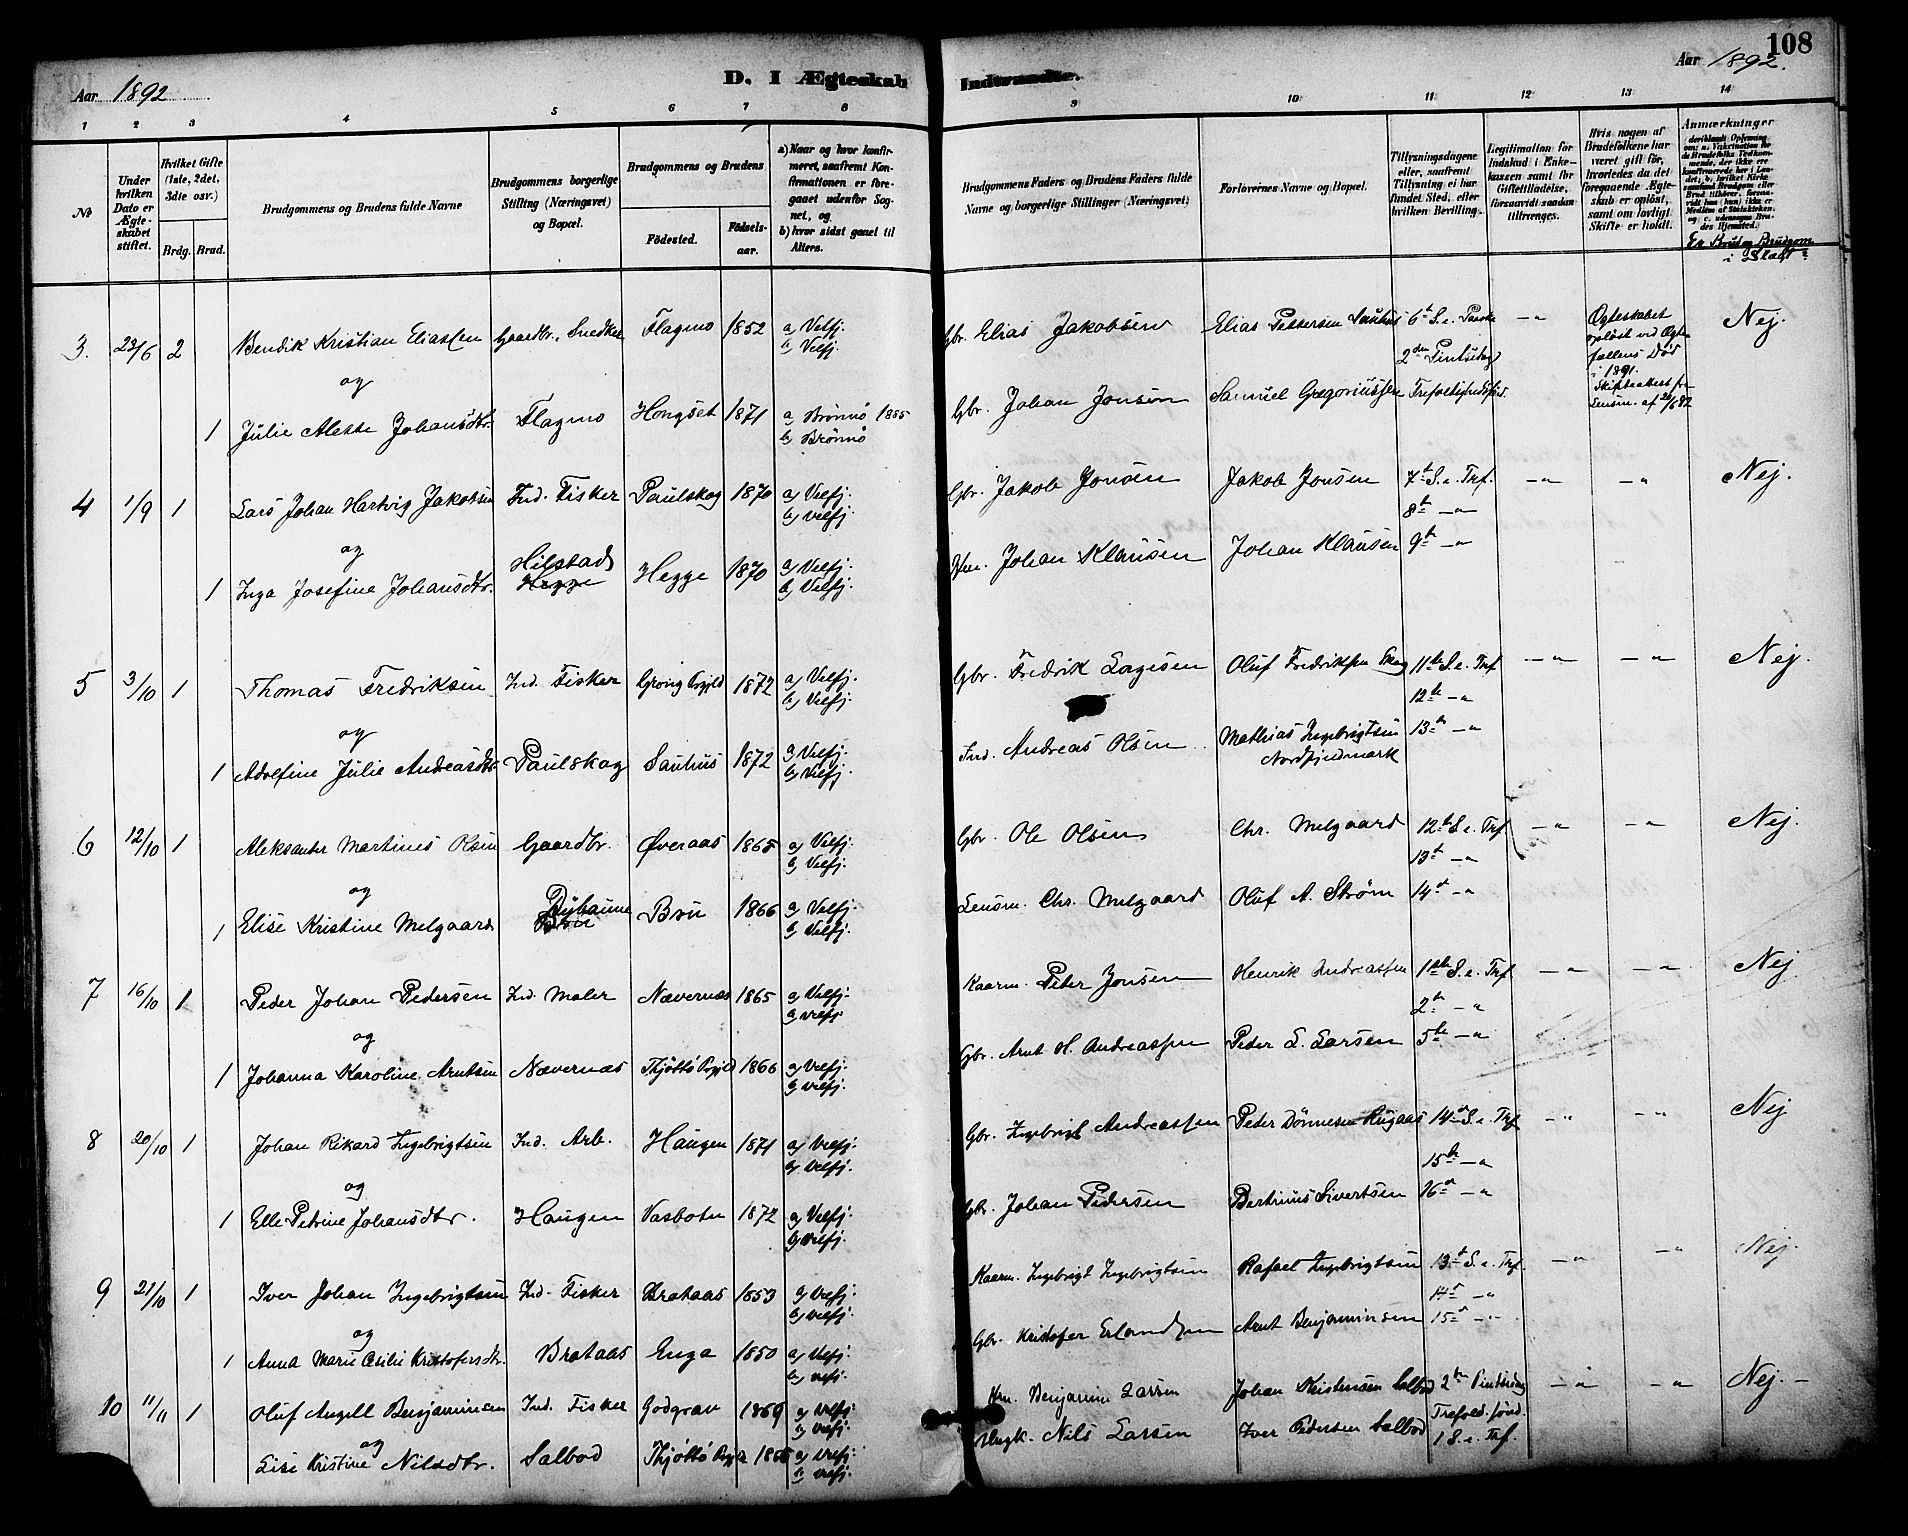 Aar 1892
D. I Ægteskab
Indtraadte.
Aar 1892.
108
1 2 3 4 5 6 7 8
9 10 11 12 13 14
No
Under hvilken Dato er Ægteskabet stiftet.
Hvilket Gifte (1ste, 2det, 3die osv.)
Brdg. Brud.
Brudgommens og Brudens fulde Navne
Brudgommens borgerlige Stilling (Næringsvei) og Bopæl.
Brudgommens og Brudens
Födested.
Födselsaar.
a) Naar og hvor konfirmeret, saafremt Konfirmationen er foregaaet udenfor Sognet, og
b) hvor sidst gaaet til Alters.
Brudgommens Faders og Brudens Faders fulde Navne og borgerlige Stillinger (Næringsvei)
Forlovernes Navne og Bopæl.
Tillysningsdagene eller, saafremt Tillysning ei har fundet Sted, efter hvilken Bevilling.
Legitimation for Indskud i Enkekassen samt for Giftetilladelse, forsaavidt saadan tiltrænges.
Hvis nogen af Brudefolkene har været gift för, hvorledes da det foregaaende Ægteskab er oplöst, samt om lovligt Skifte er holdt.
Anmærkninger
Er Brud og Brudgom
i Slægt
3. 23/6 2 Bendik Kristian Eliassen Gaardbr. Snedker Flagmo 1852 a) Velfj. Gbr. Elias Jakobsen Elias Pettersen Sauhus 6te S. e. Paaske — " Ægteskabet Nej.
b) Velfj. 2den Pintsedag opløst ved Ægte-
og fællens Død
i 1891.
1 Julie Alette Johansdtr. Flagmo Hongset 1871 a) Brønnø 1885 Gbr. Johan Jonsen Samuel Gregoriussen Trefoldighedsfest.
b) Brønnø
4 1/9 1 Lars Johan Hartvig Jakobsen Ind. Fisker Paulskog 1870 a) Velfj. Gbr. Jakob Jonsen Jakob Jonsen 7de S. e. Tref. — " — " Nej.
b) Velfj. 8de — "
og Hilstad
1 Inga Josefine Johansdtr. Hegge Hegge 1870 a) Velfj. Johan Klausen Johan Klausen 9de — "
b) Velfj.
5 3/10 1 Thomas Fredriksen Ind. Fisker Grong Prgjld 1872 a) Velfj. Gbr. Fredrik Lagesen Oluf Fredriksen Skog 11te S. e. Tref — " — " Nej.
b) Velfj. 12te — "
og
1 Adolfine Julie Andreasdtr Paulskog Sauhus 1872 a) Velfj. Ind. Andreas Olsen Mathias Ingebrigtsen 13de — "
b) Velfj. Nordfjeldmark
6 12/10 1 Aleksander Martinus Olsen Gaardbr. Øveraas 1865 a) Velfj. Gbr. Ole Olsen Chr. Melgaard 12te S. e. Tref — " — " Nej.
b) Velfj. 13de — "
og
1 Elise Kristine Melgaard Bru Bru 1866 a) Velfj. Lensm. Chr. Melgaard Oluf A. Strøm 14de — "
b) Velfj.
7 16/10 1 Peder Johan Pedersen Ind. Maler Nævernæs 1865 a) Velfj. Kaarm. Peter Jonsen Henrik Andreassen 1ste S. e. Tref — " — " Nej
b) Velfj. 2den — "
og
1 Johanna Karoline Arntsen Nævernæs Thjøttø Prgjld 1866 a) Velfj. Gbr. Arnt H. Andreassen Peder L. Larsen 5te — "
b) Velfj.
8 20/10 1 Johan Rikard Ingebrigtsen Ind. Arb. Haugen 1871 a) Velfj. Gbr. Ingebrigt Andreassen Peder Dønnesen Rugaas 14de S. e. Tref — " — " Nej
b) Velfj. 15de — "
og
1 Elle Petrine Johansdtr. Haugen Vasbotn 1872 a) Velfj. Gbr. Johan Pedersen Bertinus Sivertsen 16de — "
b) Velfj.
9 21/10 1 Iver Johan Ingebrigtsen Ind. Fisker Brataas 1853 a) Velfj. Kaarm. Ingebrigt Ingebrigtsen Rafael Ingebrigtsen 13de S. e. Tref. — " — " Nej.
b) Velfj. 14de — "
og
1 Anna Marie Cecilie Kristofersdtr. Brataas Enga 1850 a) Velfj. Gbr. Kristofer Erlandsen Arnt Benjaminsen 15de — "
b) Velfj.
10 11/11 1 Oluf Angell Benjaminsen Ind. Fisker Godgrav 1869 a) Velfj. Benjamin Larsen Johan Kristensen Salbod 2den Pintsedag — " — " Nej. —
b) Velfj. Trefold. sønd.
og
Lise Kristine Nilsdtr. Salbod Thjøttø Prgjld a) Velfj. Nils Larsen Iver Pedersen Salbod 1 S. e. Tref.
b) Velfj.